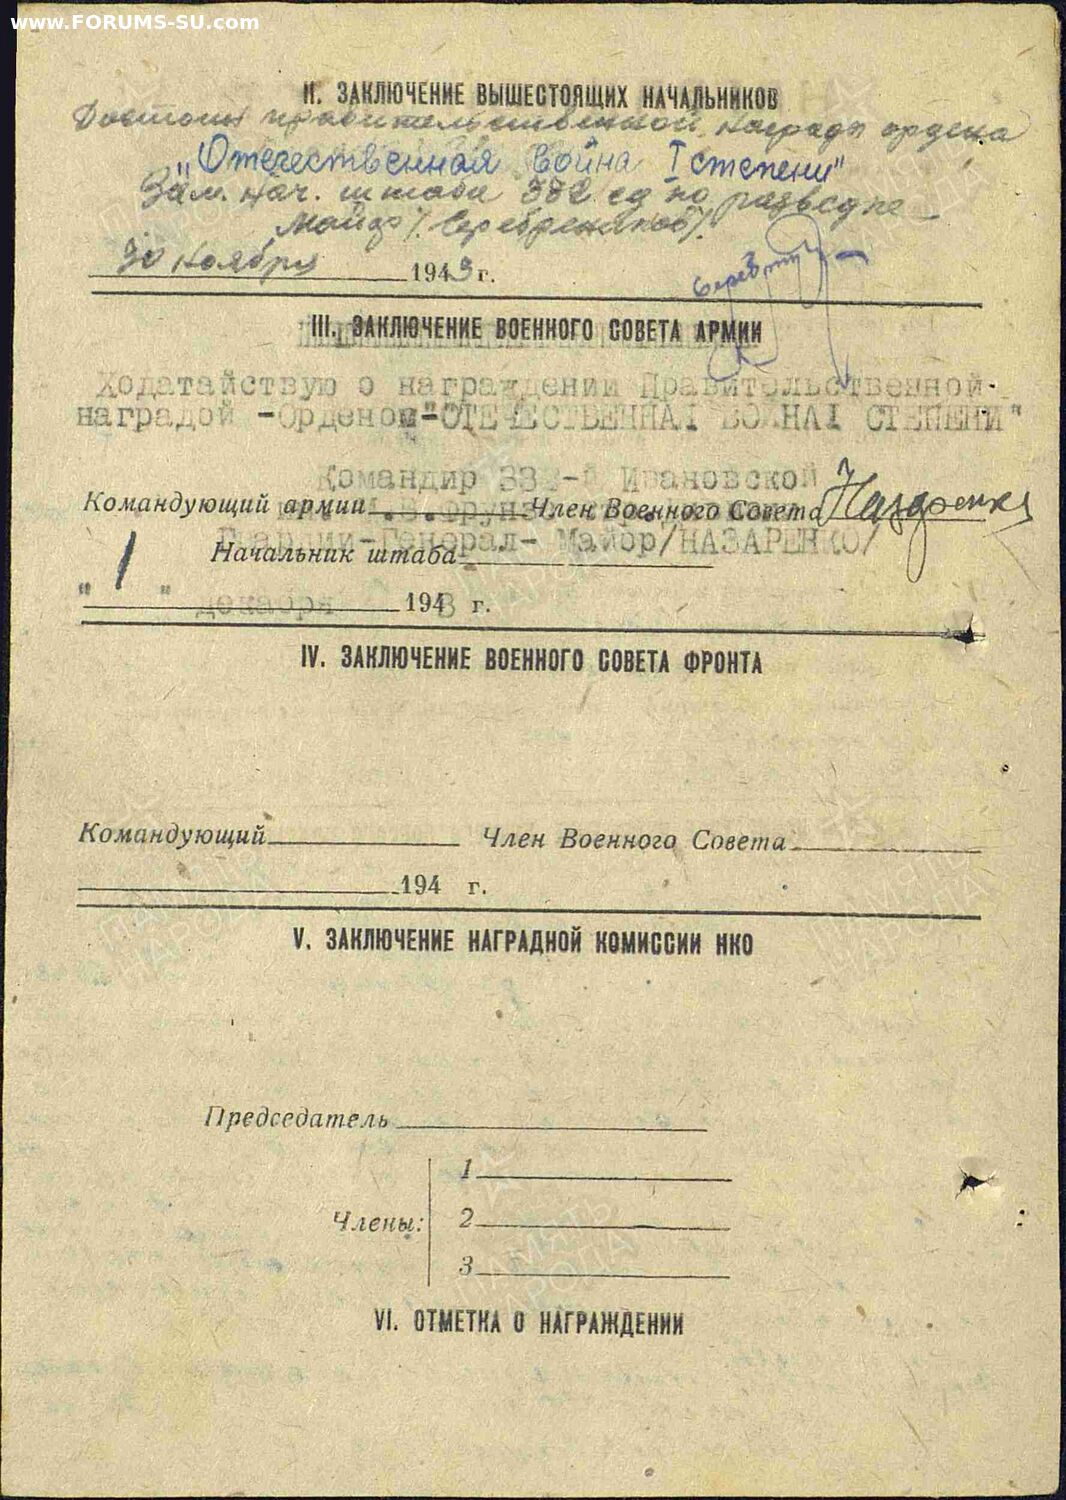 www.FORUMS-SU.com
II. ЗАКЛЮЧЕНИЕ ВЫШЕСТОЯЩИХ НАЧАЛЬНИКОВ
Достоин правительственной награды ордена
"Отечественная война I степени"
Зам. нач. штаба 332 сд по разведке
Майор /Серебреников/.
30 ноября 1943 г.
III. ЗАКЛЮЧЕНИЕ ВОЕННОГО СОВЕТА АРМИИ
Ходатайствую о награждении Правительственной
наградой -Орденом-"ОТЕЧЕСТВЕННАЯ ВОЙНА I СТЕПЕНИ"
Командир 332-й Ивановской
Командующий армии Член Военного Совета Назаренко
Гвардии-Генерал- Майор/НАЗАРЕНКО/
Начальник штаба
"1" декабря 1943 г.
IV. ЗАКЛЮЧЕНИЕ ВОЕННОГО СОВЕТА ФРОНТА
Командующий Член Военного Совета
194 г.
V. ЗАКЛЮЧЕНИЕ НАГРАДНОЙ КОМИССИИ НКО
Председатель
Члены:
1
2
3
VI. ОТМЕТКА О НАГРАЖДЕНИИ
ПАМЯТЬ НАРОДА